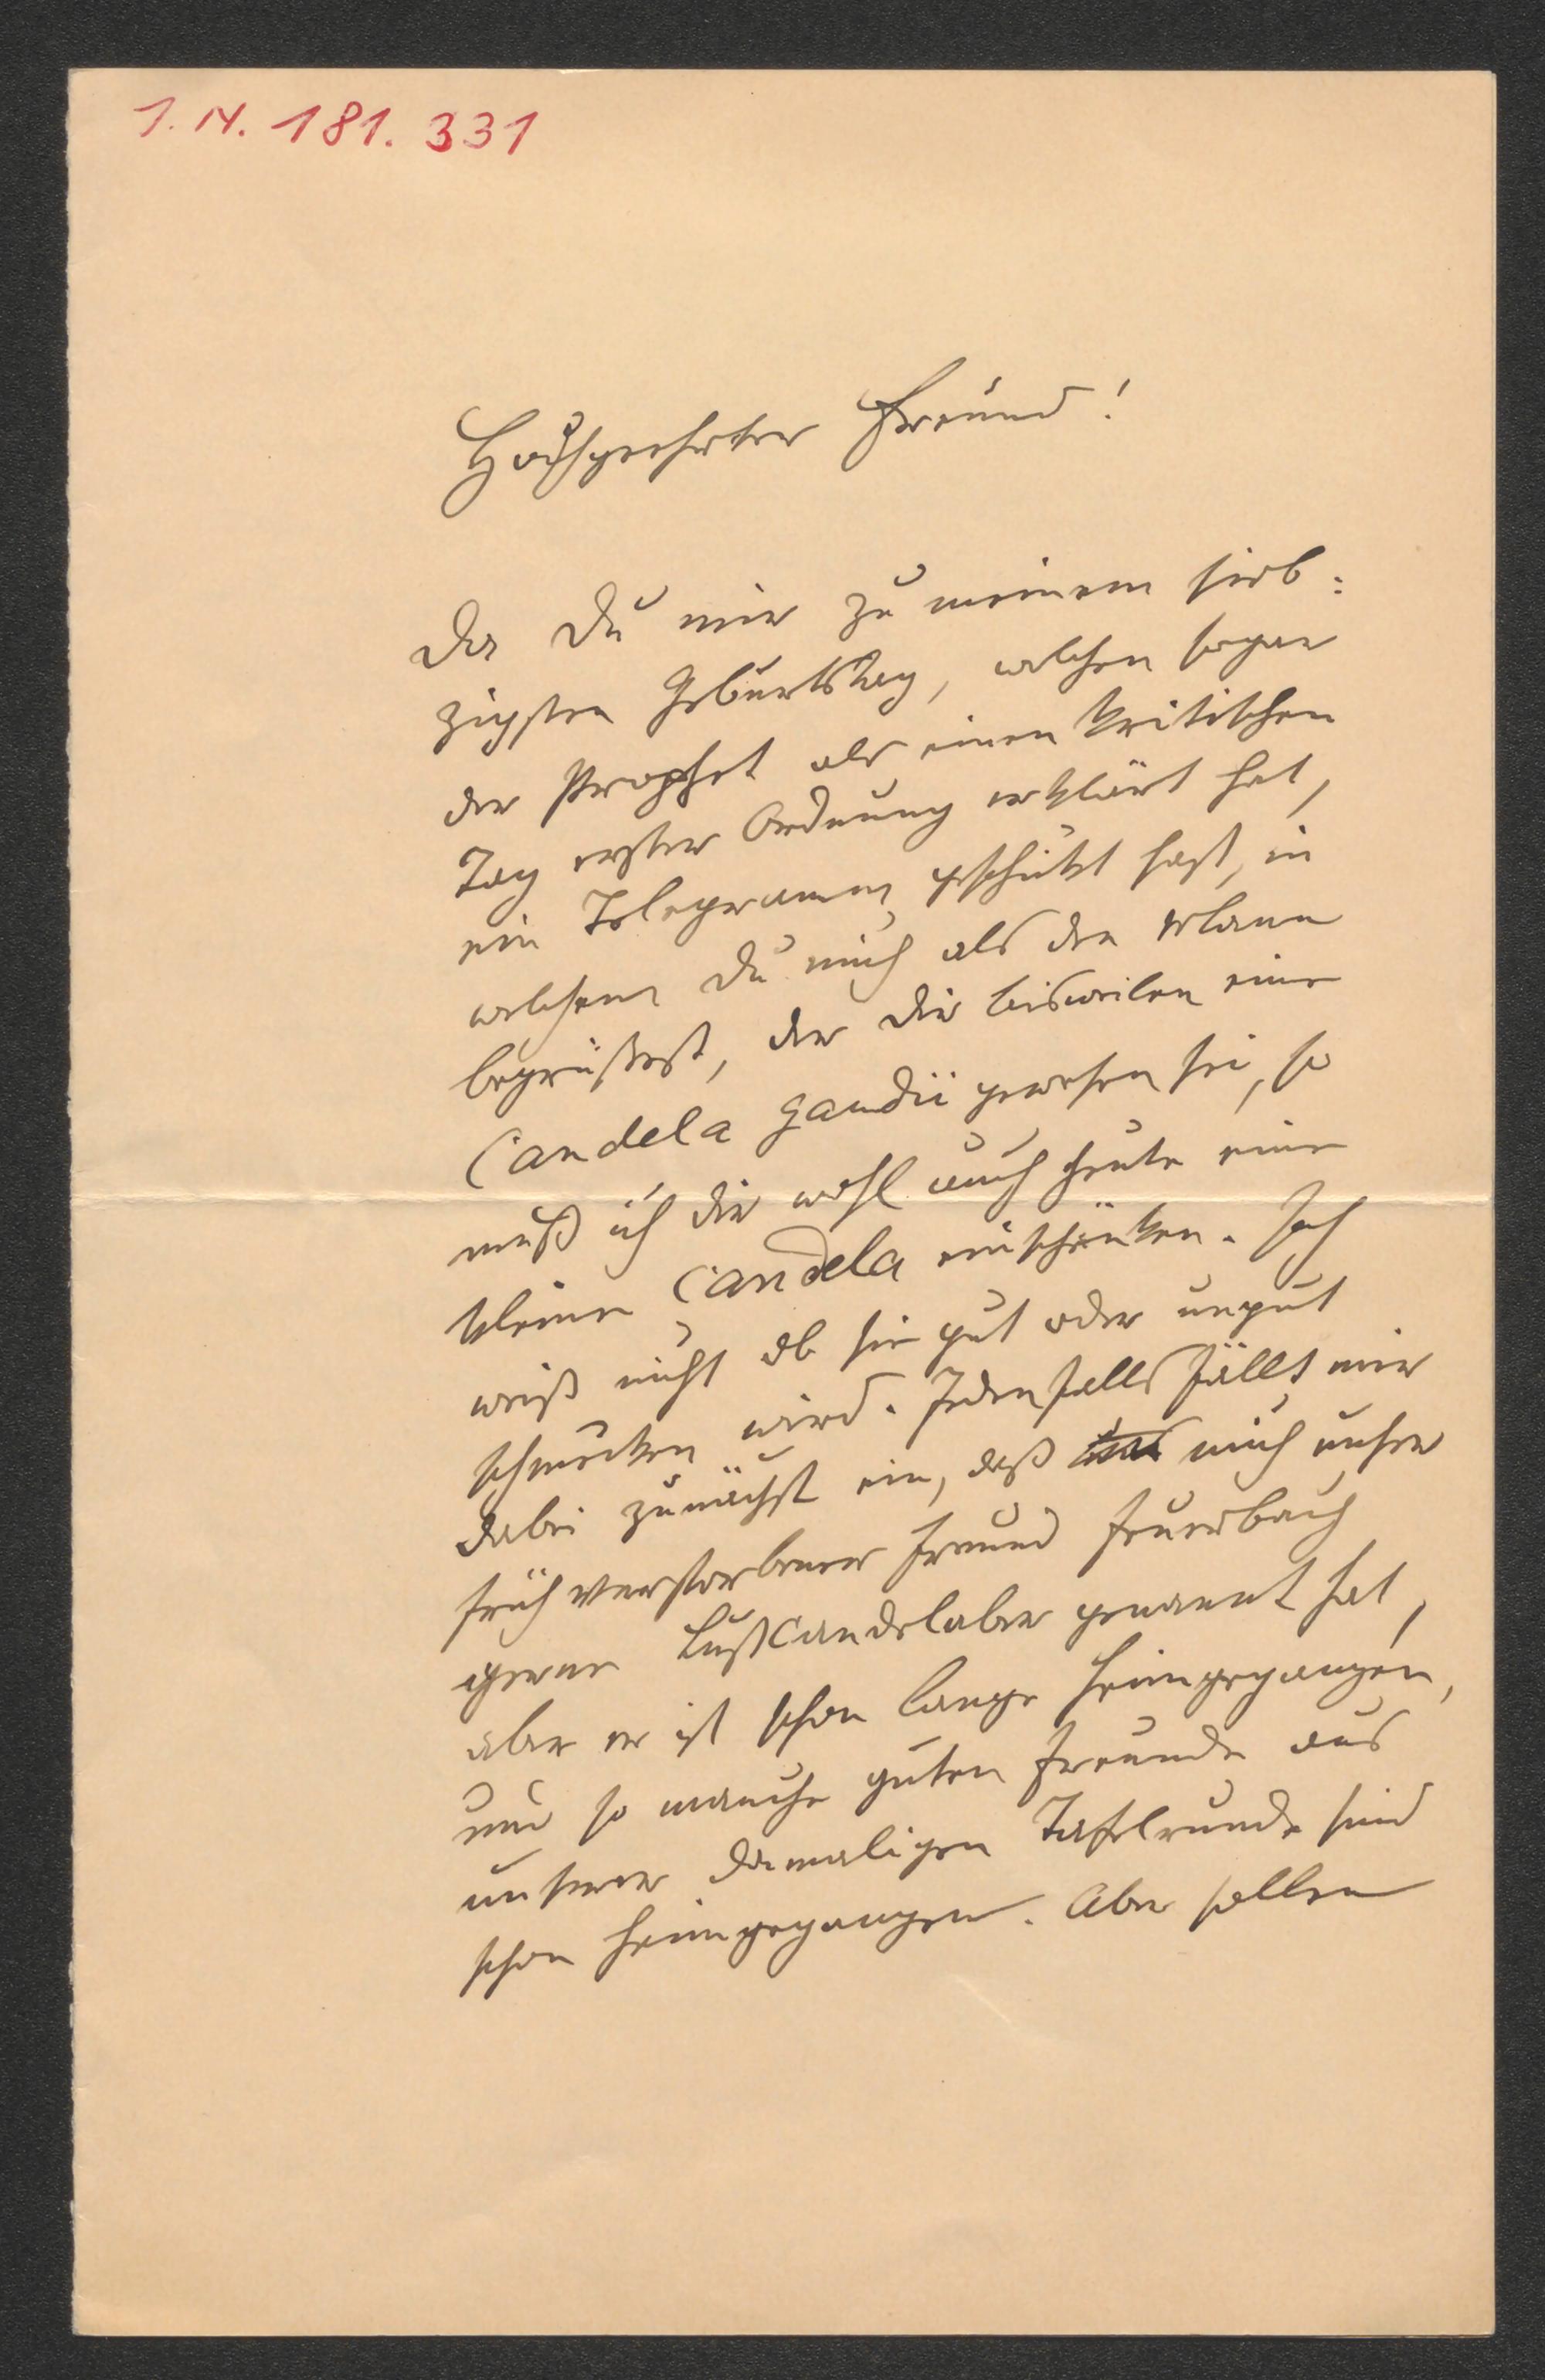 I.N. 181.331
Hochgeehrter Freund!
Da Du mir zu meinem sieb:
zigsten Geburtstag, welchen sogar
der Prophet als einen kritischen
Tag erster Ordnung erklärt hat,
ein Telegramm geschickt hast, in
welchem Du mich als den Mann
begrüßest, der Dir bisweilen eine
Candela gaudii gewesen sei, so
muß ich Dir wohl auch heute eine
kleine Candela einschänken. Ich
weiß nicht ob sie gut oder ungut
schmecken wird. Jedenfalls fällt mir
dabei zunächst ein, daß mich unser
früh verstorbener Freund Feuerbach
gerne Lustcandelaber genannt hat,
aber er ist schon lange heimgegangen,
und so manche guten Freunde aus
unserer damaligen Tafelrunde sind
schon heimgegangen. Aber sollen